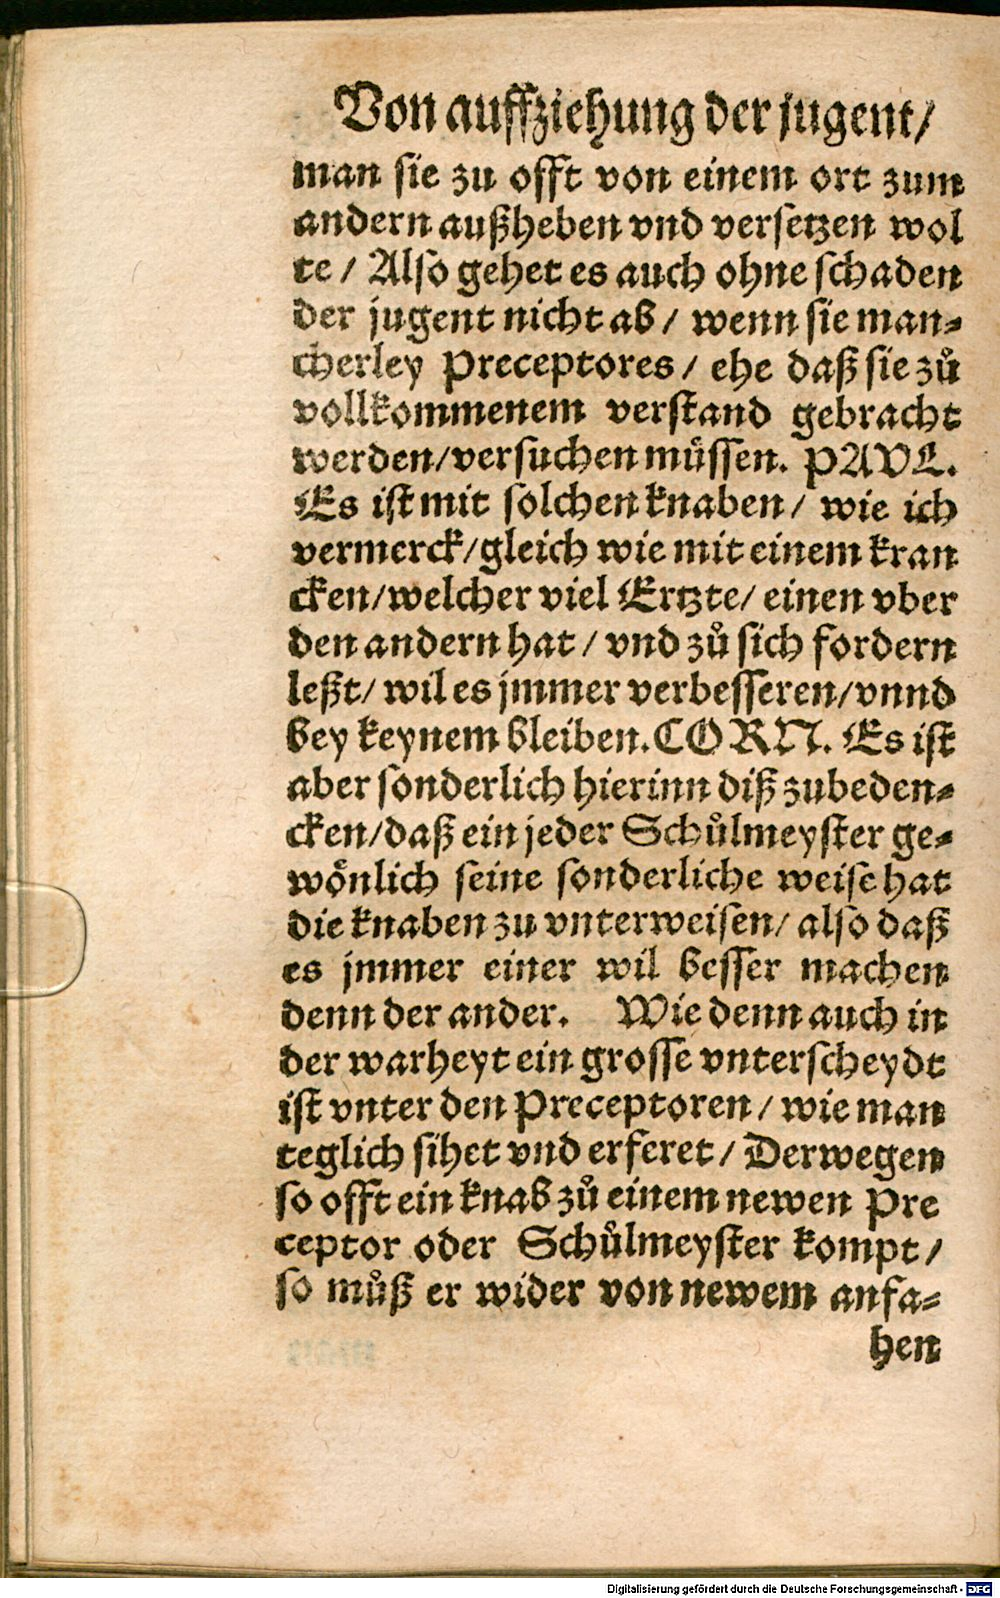 Von auffziehung der jugent/
man sie zu offt von einem ort zum
andern außheben vnd versetzen wol
te / Also gehet es auch ohne schaden
der jugent nicht ab / wenn sie man⸗
cherley Preceptores / ehe daß sie zů
vollkommenem verstand gebracht
werden/versuchen müssen. PAVL.
Es ist mit solchen knaben / wie ich
vermerck/gleich wie mit einem kran
cken/welcher viel Ertzte/ einen vber
den andern hat / vnd zů sich fordern
leßt/ wil es jmmer verbesseren/vnnd
bey keynem bleiben. CORN. Es ist
aber sonderlich hierinn diß zubeden⸗
cken/daß ein jeder Schůlmeyster ge⸗
wönlich seine sonderliche weise hat
die knaben zu vnterweisen/ also daß
es jmmer einer wil besser machen
denn der ander. Wie denn auch in
der warheyt ein grosse vnterscheydt
ist vnter den Preceptoren / wie man
teglich sihet vnd erferet / Derwegen
so offt ein knab zů einem newen Pre
ceptor oder Schůlmeyster kompt /
so můß er wider von newem anfa⸗
hen
Digitalisierung gefördert durch die Deutsche Forschungsgemeinschaft - DFG